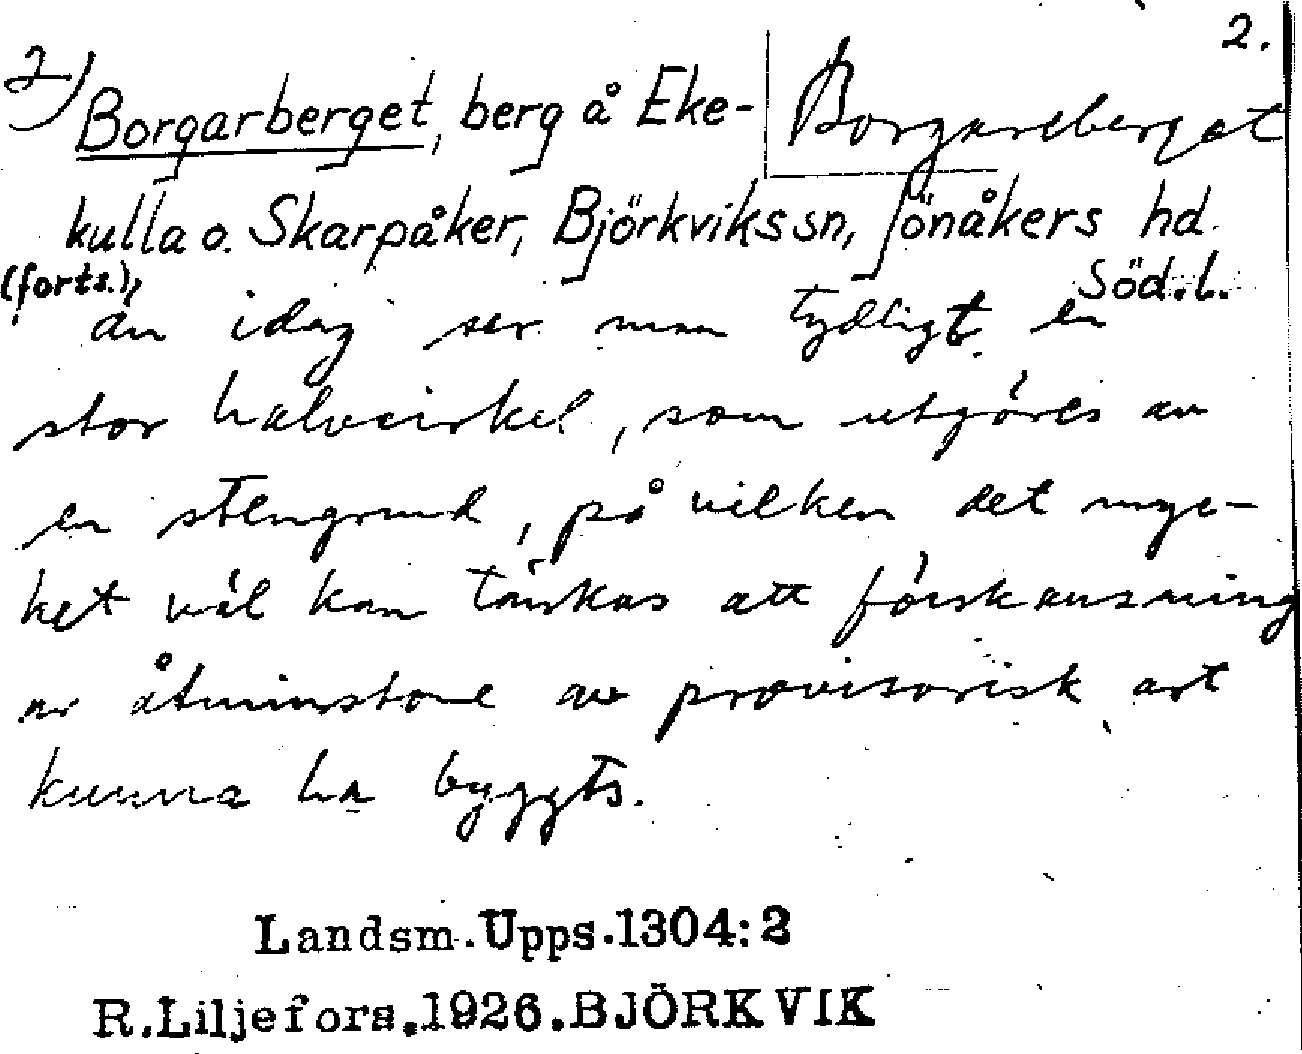 2.
2) Borgarberget, berg å Eke- Borgareberget
kulla o. Skarpåker, Björkviks sn, Jönåkers hd.
(forts.), Söd.l.
än idag ser man tydligt en
stor halvcirkel, som utgöres av
en stengrund, på vilken det myc-
ket väl kan tänkas att förskansning
ar åtminstone av provisorisk art
kunna ha byggts.
Landsm.Upps.1304:2
R.Liljefors.1926.BJÖRKVIK